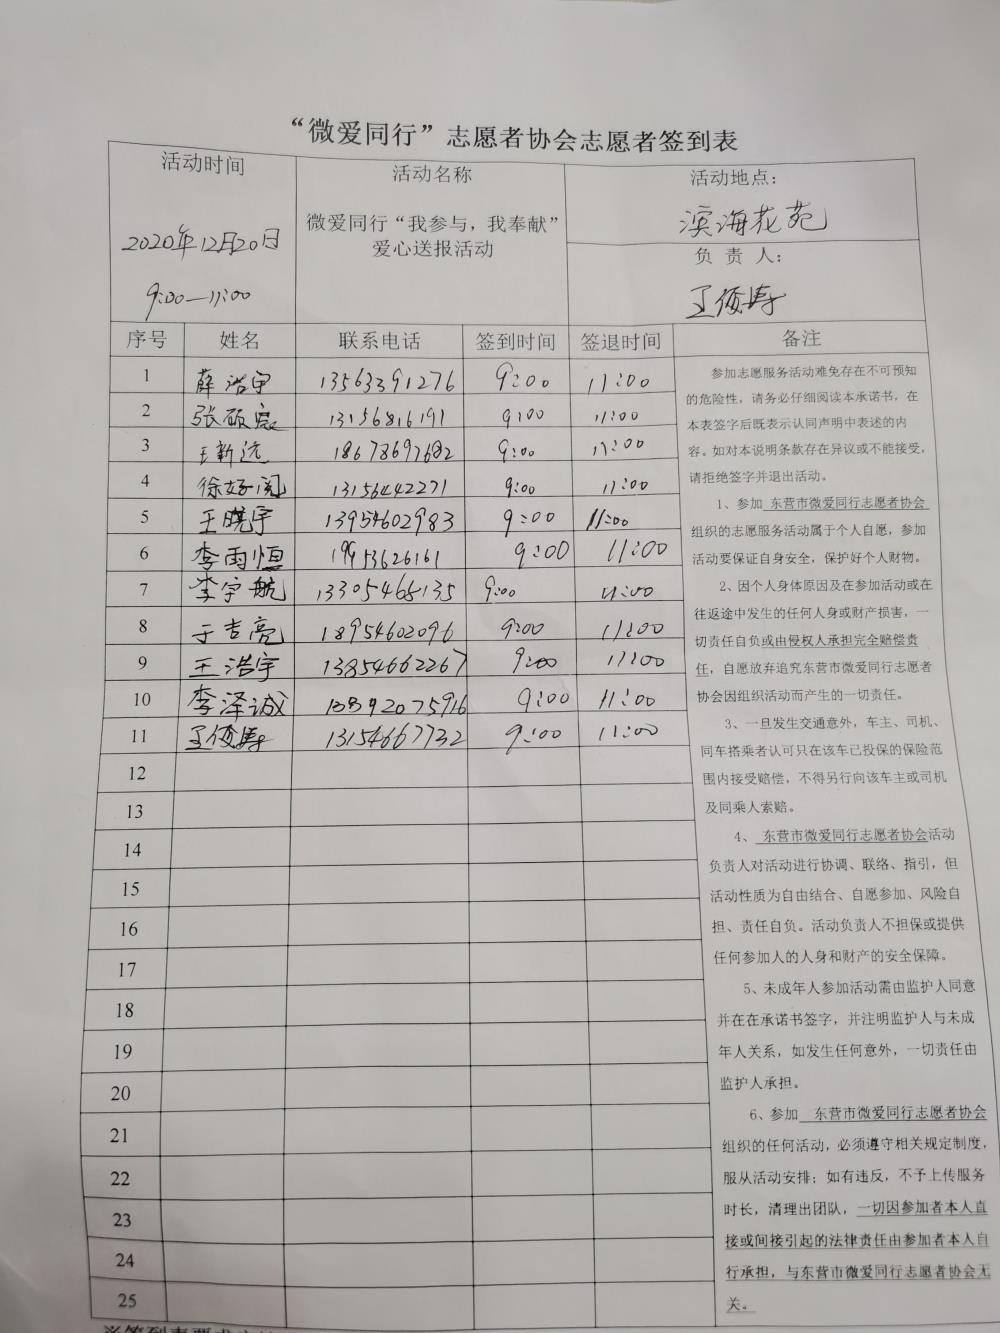 “微爱同行”志愿者协会志愿者签到表
活动时间
2020年12月20日
9:00—11:00
活动名称
微爱同行“我参与，我奉献”
爱心送报活动
活动地点：
滨海花苑
负 责 人：
王俊涛
序号 姓名 联系电话 签到时间 签退时间 备注
1 薛浩宇 13563391276 9:00 11:00
2 张硕宸 13156816191 9:00 11:00
3 王新远 18678697682 9:00 11:00
4 徐好阅 13156442271 9:00 11:00
5 王晓宇 13954602983 9:00 11:00
6 李雨恒 9:00 11:00
7 李宇航 13305468135 9:00 11:00
8 于吉亮 18954602096 9:00 11:00
9 王浩宇 13854662267 9:00 11:00
10 李泽诚 9:00 11:00
11 王俊涛 13154667732 9:00 11:00
12
13
14
15
16
17
18
19
20
21
22
23
24
25
参加志愿服务活动难免存在不可预知
的危险性，请务必仔细阅读本承诺书，在
本表签字后既表示认同声明中表述的内
容。如对本说明条款存在异议或不能接受，
请拒绝签字并退出活动。
1、参加 东营市微爱同行志愿者协会
组织的志愿服务活动属于个人自愿，参加
活动要保证自身安全，保护好个人财物。
2、因个人身体原因及在参加活动或在
往返途中发生的任何人身或财产损害，一
切责任自负或由侵权人承担完全赔偿责
任，自愿放弃追究东营市微爱同行志愿者
协会因组织活动而产生的一切责任。
3、一旦发生交通意外，车主、司机、
同车搭乘者认可只在该车已投保的保险范
围内接受赔偿，不得另行向该车主或司机
及同乘人索赔。
4、东营市微爱同行志愿者协会活动
负责人对活动进行协调、联络、指引，但
活动性质为自由结合、自愿参加、风险自
担、责任自负。活动负责人不担保或提供
任何参加人的人身和财产的安全保障。
5、未成年人参加活动需由监护人同意
并在在承诺书签字，并注明监护人与未成
年人关系，如发生任何意外，一切责任由
监护人承担。
6、参加 东营市微爱同行志愿者协会
组织的任何活动，必须遵守相关规定制度，
服从活动安排；如有违反，不予上传服务
时长，清理出团队，一切因参加者本人直
接或间接引起的法律责任由参加者本人自
行承担，与东营市微爱同行志愿者协会无
关。